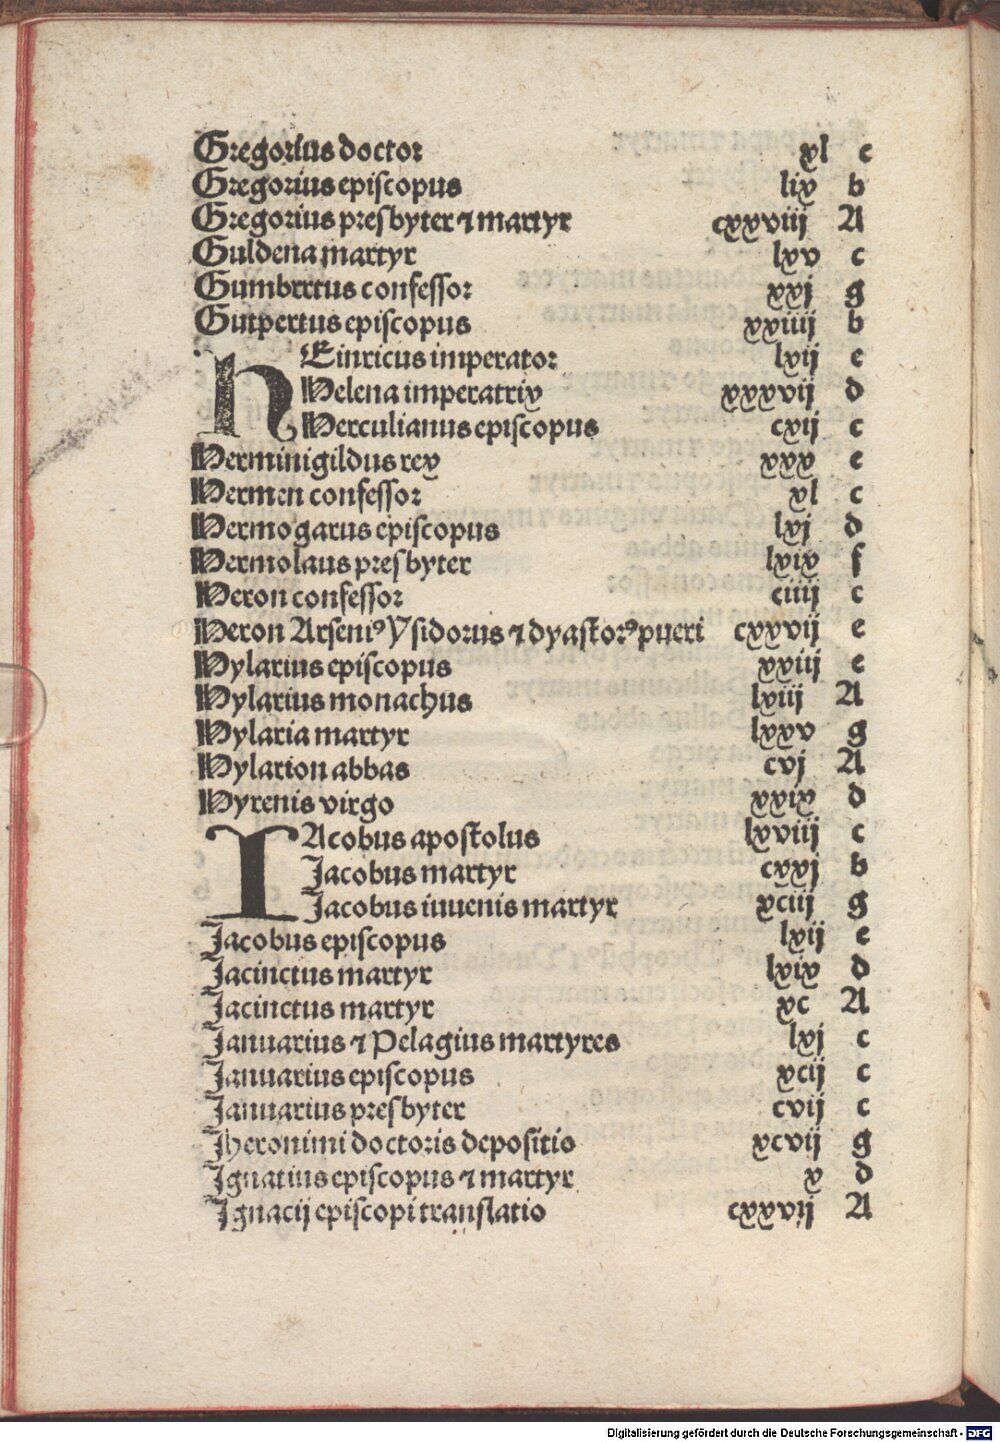 Gregorius doctor xl c
Gregorius episcopus lix b
Gregorius presbyter ⁊ martyr cxxviij A
Guldena martyr lxv c
Gumbertus confessor xxj g
Gutpertus episcopus xxiiij b
HEinricus imperator lxij e
Helena imperatrix xxxvij d
Herculianus episcopus cxij c
Herminigildus rex xxx e
Hermen confessor xl c
Hermogarus episcopus lxj d
Hermolaus presbyter lxix f
Heron confessor ciiij c
Heron Arseniꝰ Ysidorus ⁊ dyastorꝰ pueri cxxvij e
Hylarius episcopus xxiij e
Hylarius monachus lxiij A
Hylaria martyr lxxv g
Hylarion abbas cvj A
Hyrenis virgo xxix d
IAcobus apostolus lxviij c
Jacobus martyr cxxj b
Jacobus iuuenis martyr xciij g
Jacobus episcopus lxij e
Jacinctus martyr lxix d
Jacinctus martyr xc A
Januarius ⁊ Pelagius martyres lxj c
Januarius episcopus xcij c
Januarius presbyter cvij c
Jheronimi doctoris depositio xcvij g
Ignatius episcopus ⁊ martyr x d
Ignacij episcopi translatio cxxvij A
Digitalisierung gefördert durch die Deutsche Forschungsgemeinschaft - DFG